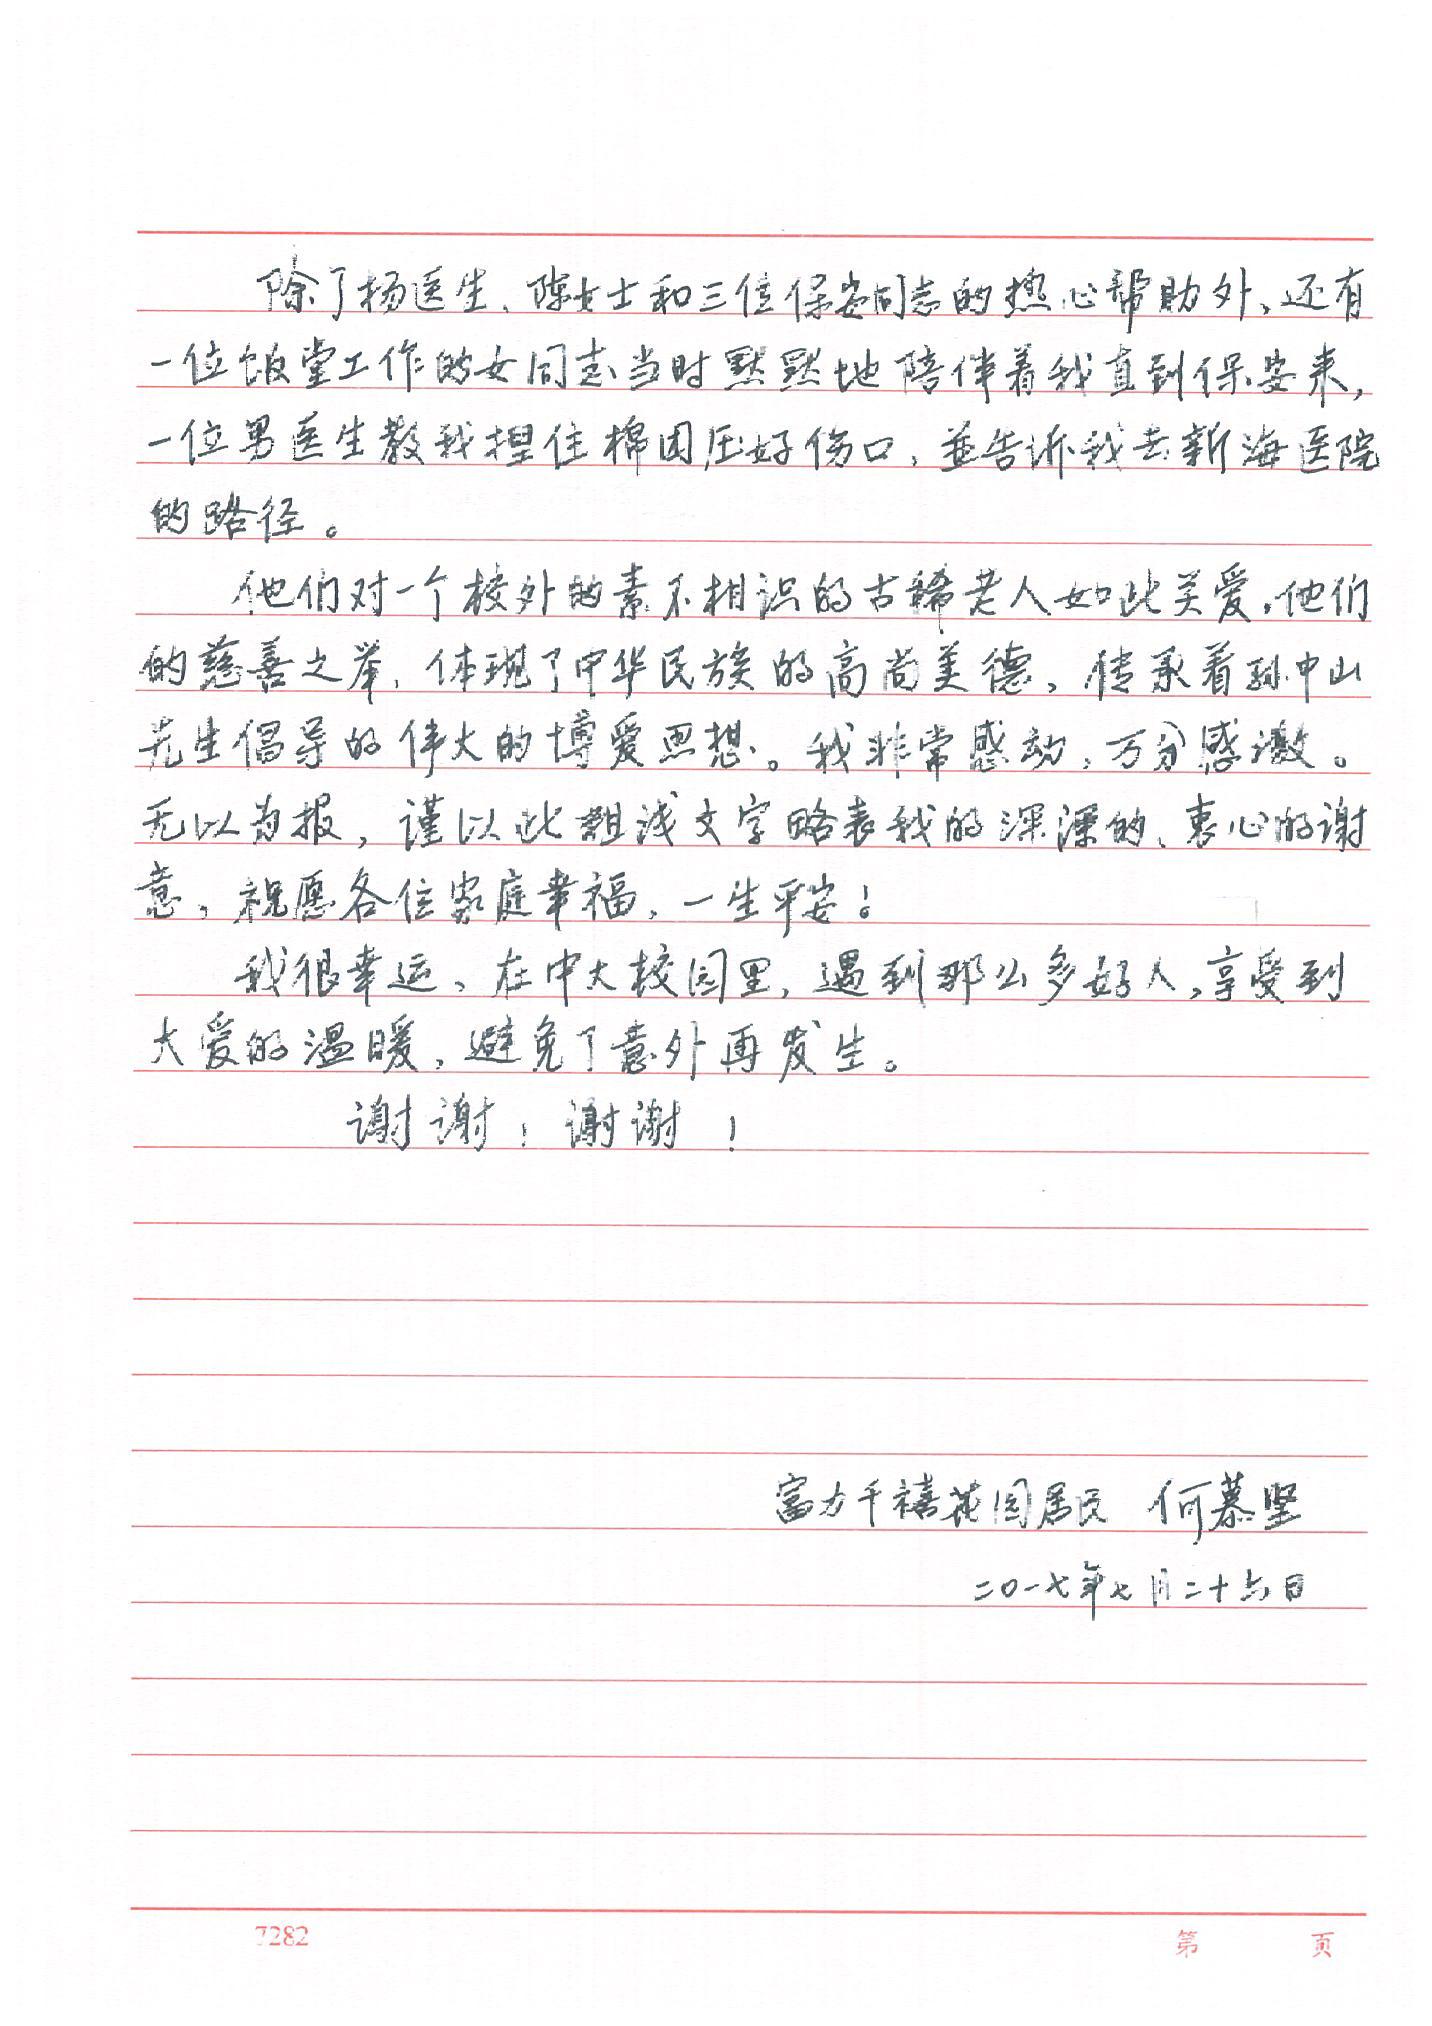 除了杨医生、陈女士和三位保安同志的热心帮助外，还有
一位饭堂工作的女同志当时默默地陪伴着我直到保安来，
一位男医生教我捏住棉团压好伤口，並告诉我去新海医院
的路径。
他们对一个校外的素不相识的古稀老人如此关爱，他们
的慈善之举，体现了中华民族的高尚美德，传承着孙中山
先生倡导的伟大的博爱思想。我非常感动，万分感激。
无以为报，谨以此粗浅文字略表我的深深的、衷心的谢
意，祝愿各位家庭幸福，一生平安！
我很幸运，在中大校园里，遇到那么多好人，享受到
大爱的温暖，避免了意外再发生。
谢谢！谢谢！
富力千禧花园居民 何慕坚
二〇一七年七月二十六日
7282 第 页